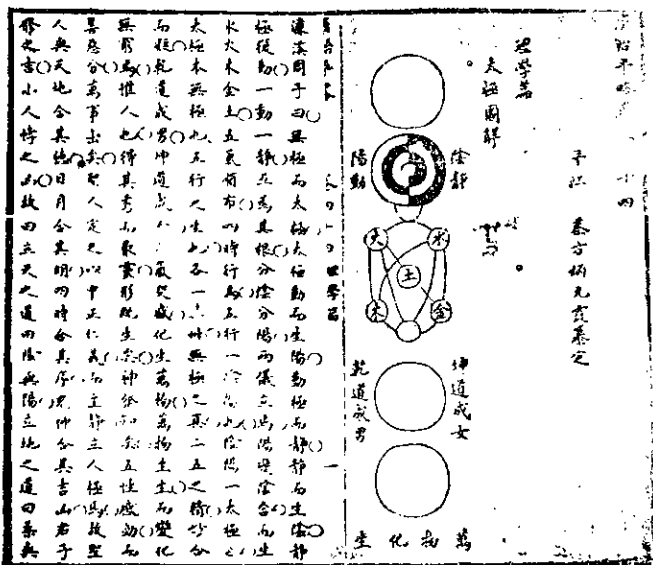 十四
蔡方炳九霞纂定
理學篇
太極圖解
陰靜
陽動
水
火
土
金
木
坤道成女
乾道成男
萬物化生
理學篇 一
濂溪周子曰無極而太極太極動而生陽動極而靜靜而生陰靜
極復動一動一靜互為其根分陰分陽兩儀立焉陽變陰合而生
水火木金土五氣順布四時行焉五行一陰陽也陰陽一太極也
太極本無極也五行之生也各一其性無極之真二五之精妙合
而凝乾道成男坤道成女二氣交感化生萬物萬物生生而變化
無窮焉惟人也得其秀而最靈形既生矣神發知矣五性感動而
善惡分萬事出矣聖人定之以中正仁義而主靜立人極焉故聖
人與天地合其德日月合其明四時合其序鬼神合其吉凶君子
修之吉小人悖之凶故曰立天之道曰陰與陽立地之道曰柔與